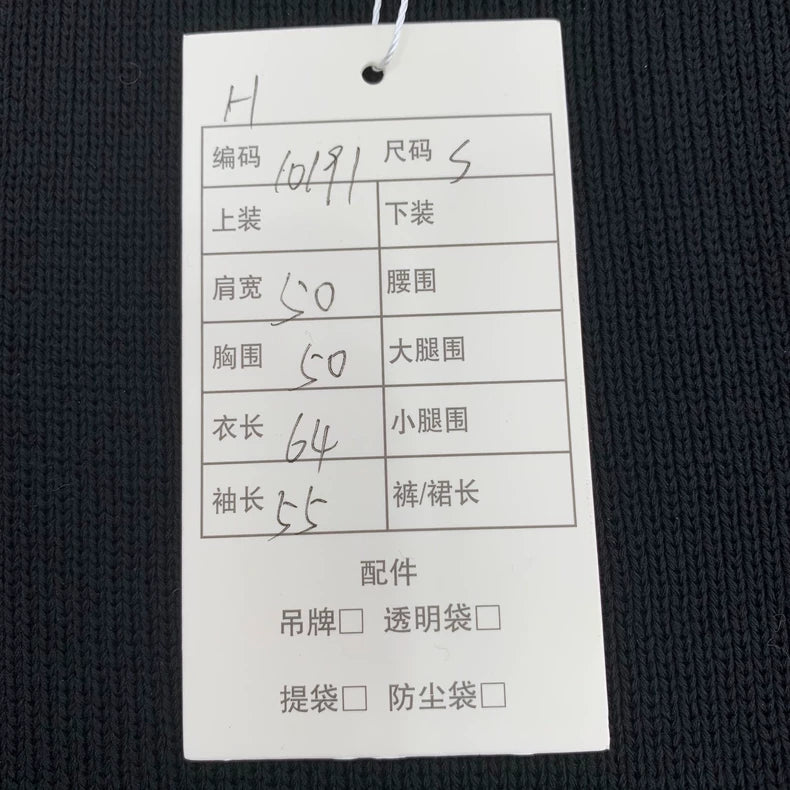 H
编码 10191 尺码 S
上装 下装
肩宽 50 腰围
胸围 50 大腿围
衣长 64 小腿围
袖长 55 裤/裙长
配件
吊牌□ 透明袋□
提袋□ 防尘袋□